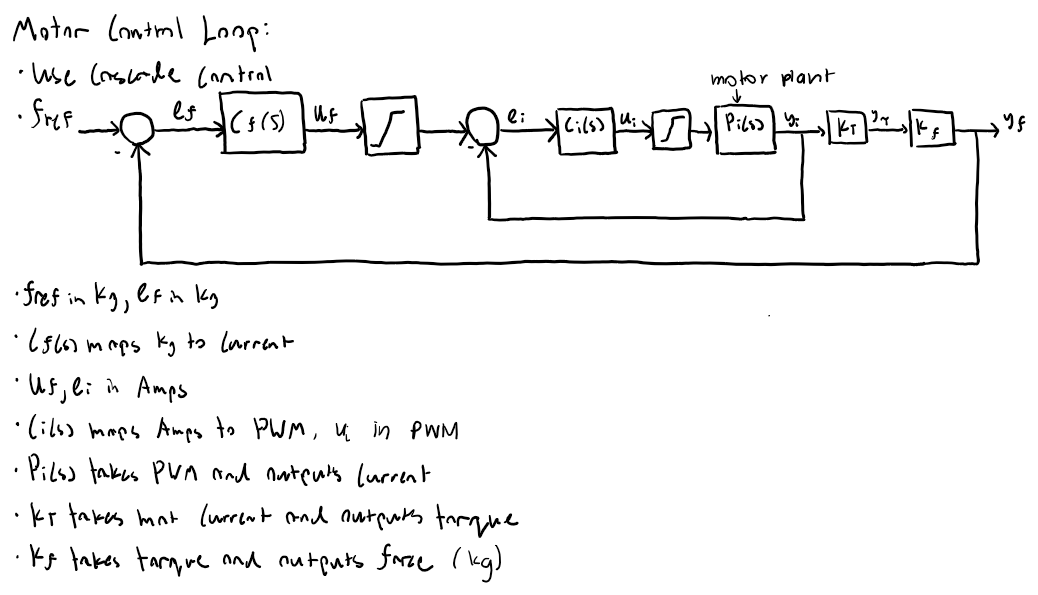 Motor Control Loop:
· Use Cascade Control
motor plant
· fref ef Cf(s) uf ei Ci(s) ui Pi(s) yi KT yτ Kf yf
- -
· fref in kg, ef in kg
· Cf(s) maps kg to Current
· uf, ei in Amps
· Ci(s) maps Amps to PWM, ui in PWM
· Pi(s) takes PWM and outputs Current
· KT takes mot Current and outputs torque
· Kf takes torque and outputs force (kg)